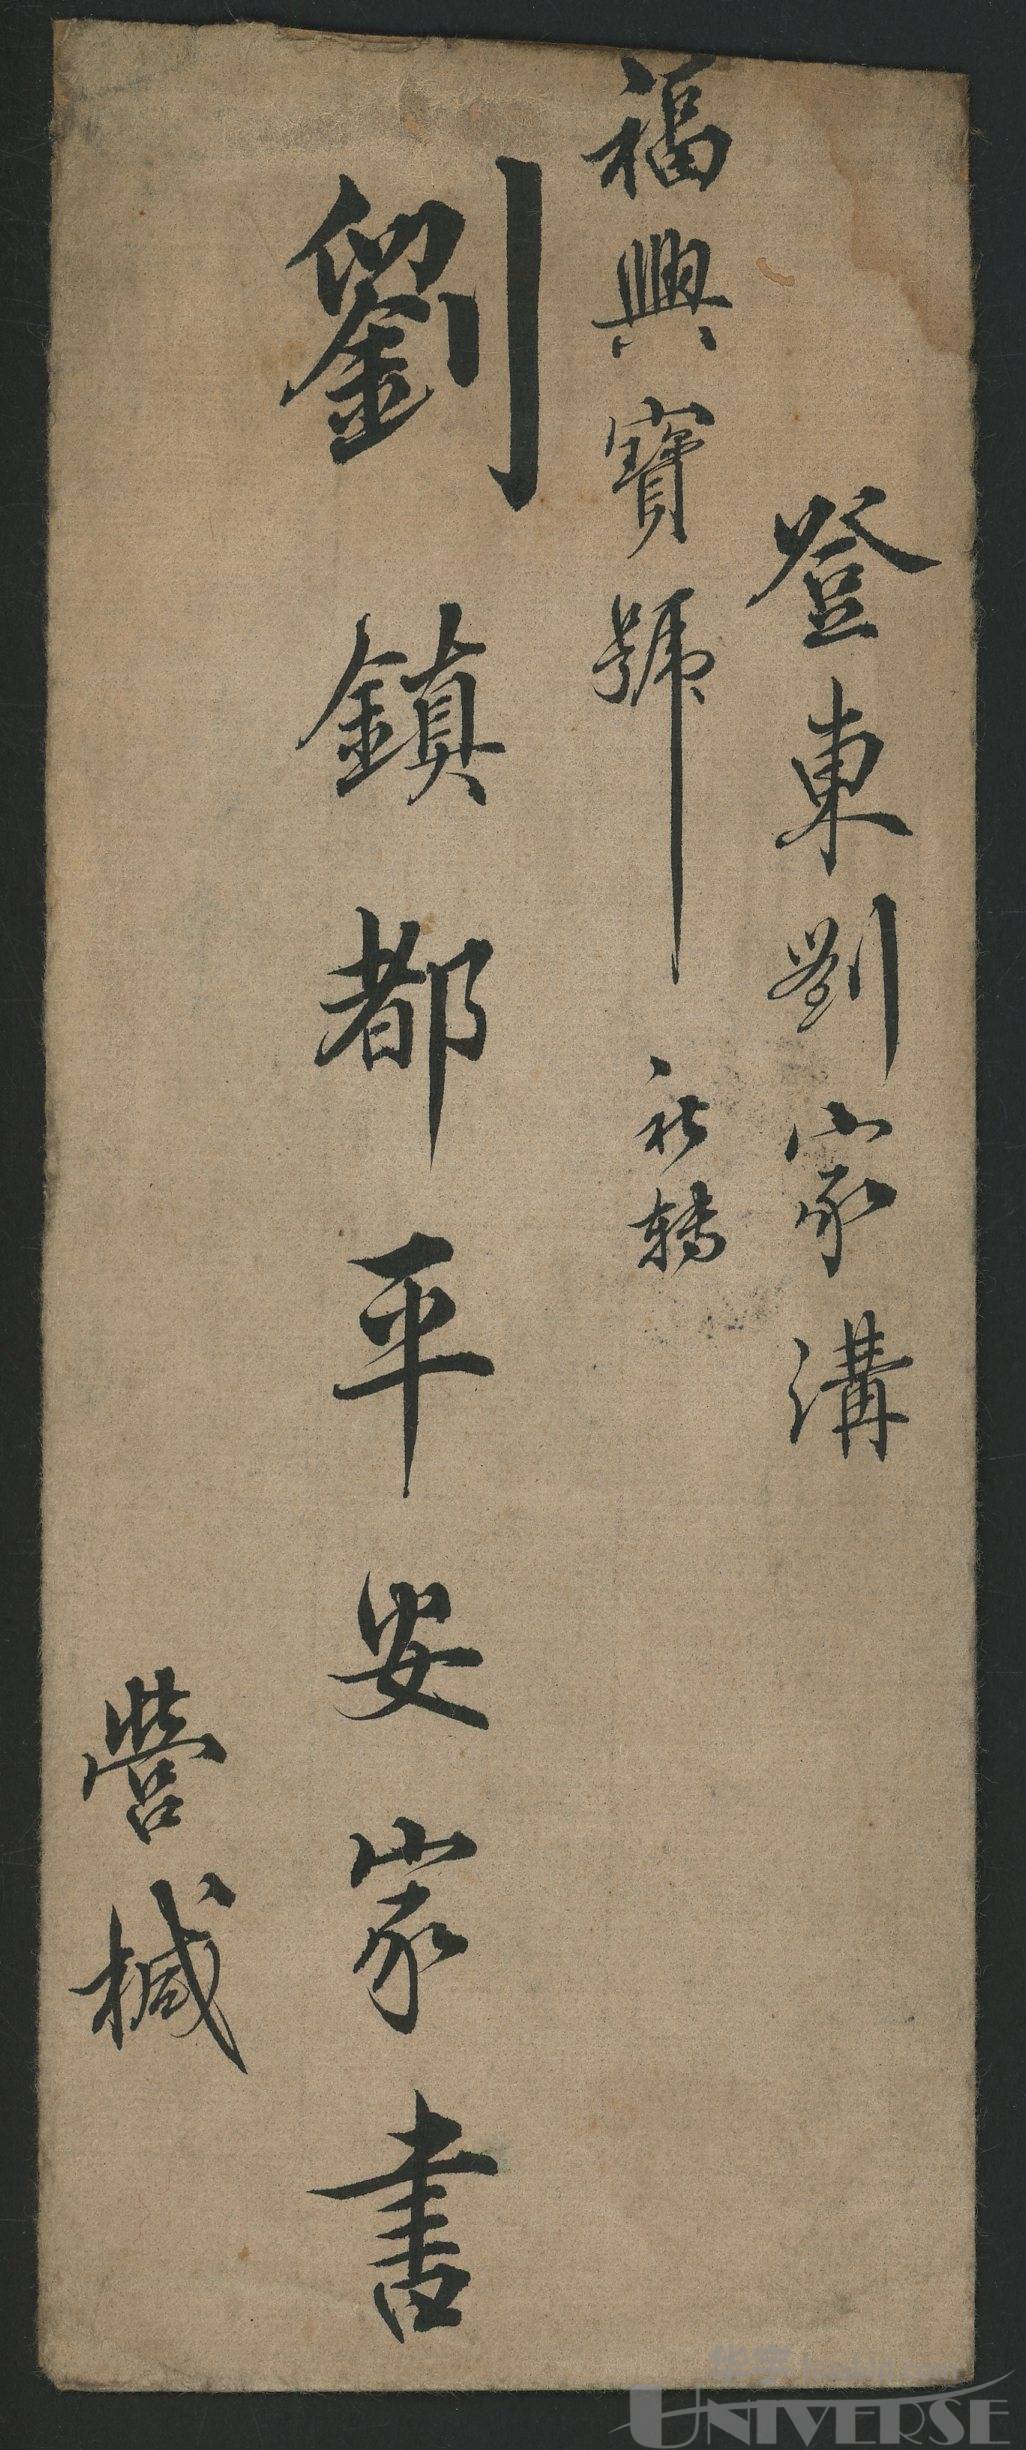 登東劉家溝
福興寶號祈轉
劉鎮都平安家書
營椷
华宇
UNIVERSE